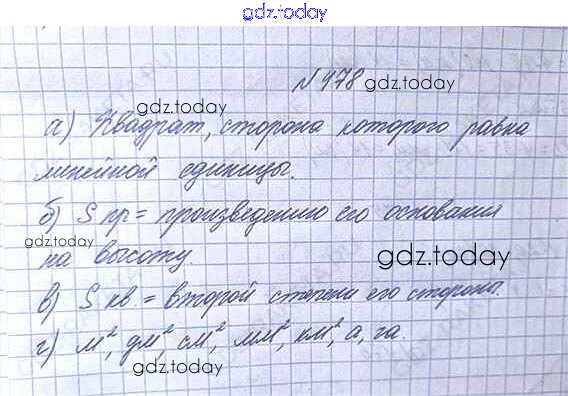 gdz.today
№ 478
gdz.today
gdz.today
а) Квадрат, сторона которого равна
линейной единицы.
б) S пр = произведению его основания
gdz.today
на высоту.
gdz.today
в) S кв = второй степени его стороны.
г) м², дм², см², мм², км², а, га.
gdz.today